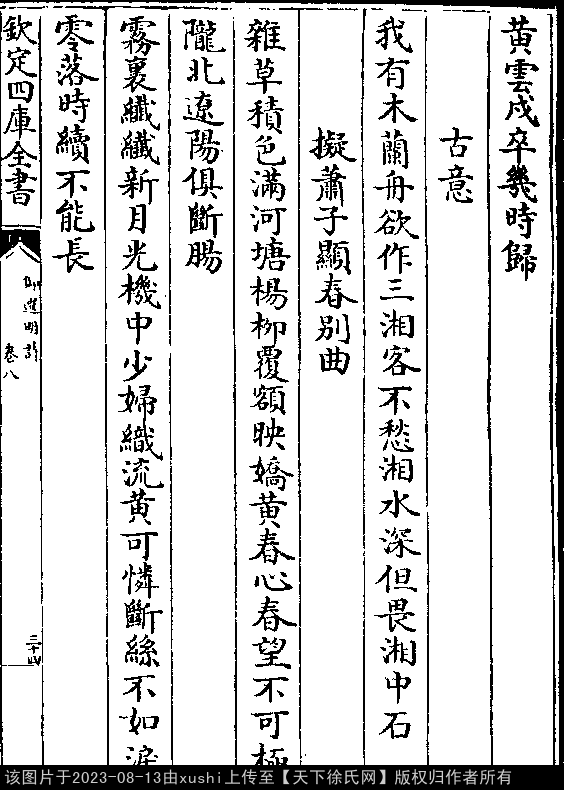 黄雲戍卒幾時歸
古意
我有木蘭舟欲作三湘客不愁湘水深但畏湘中石
擬蕭子顯春别曲
雜草積色滿河塘楊柳覆額映嬌黄春心春望不可極
隴北遼陽俱斷腸
霧裏纖纖新月光機中少婦織流黄可憐斷絲不如淚
零落時續不能長
欽定四庫全書
御選明詩
卷八
三十四
该图片于2023-08-13由xushi上传至【天下徐氏网】版权归作者所有